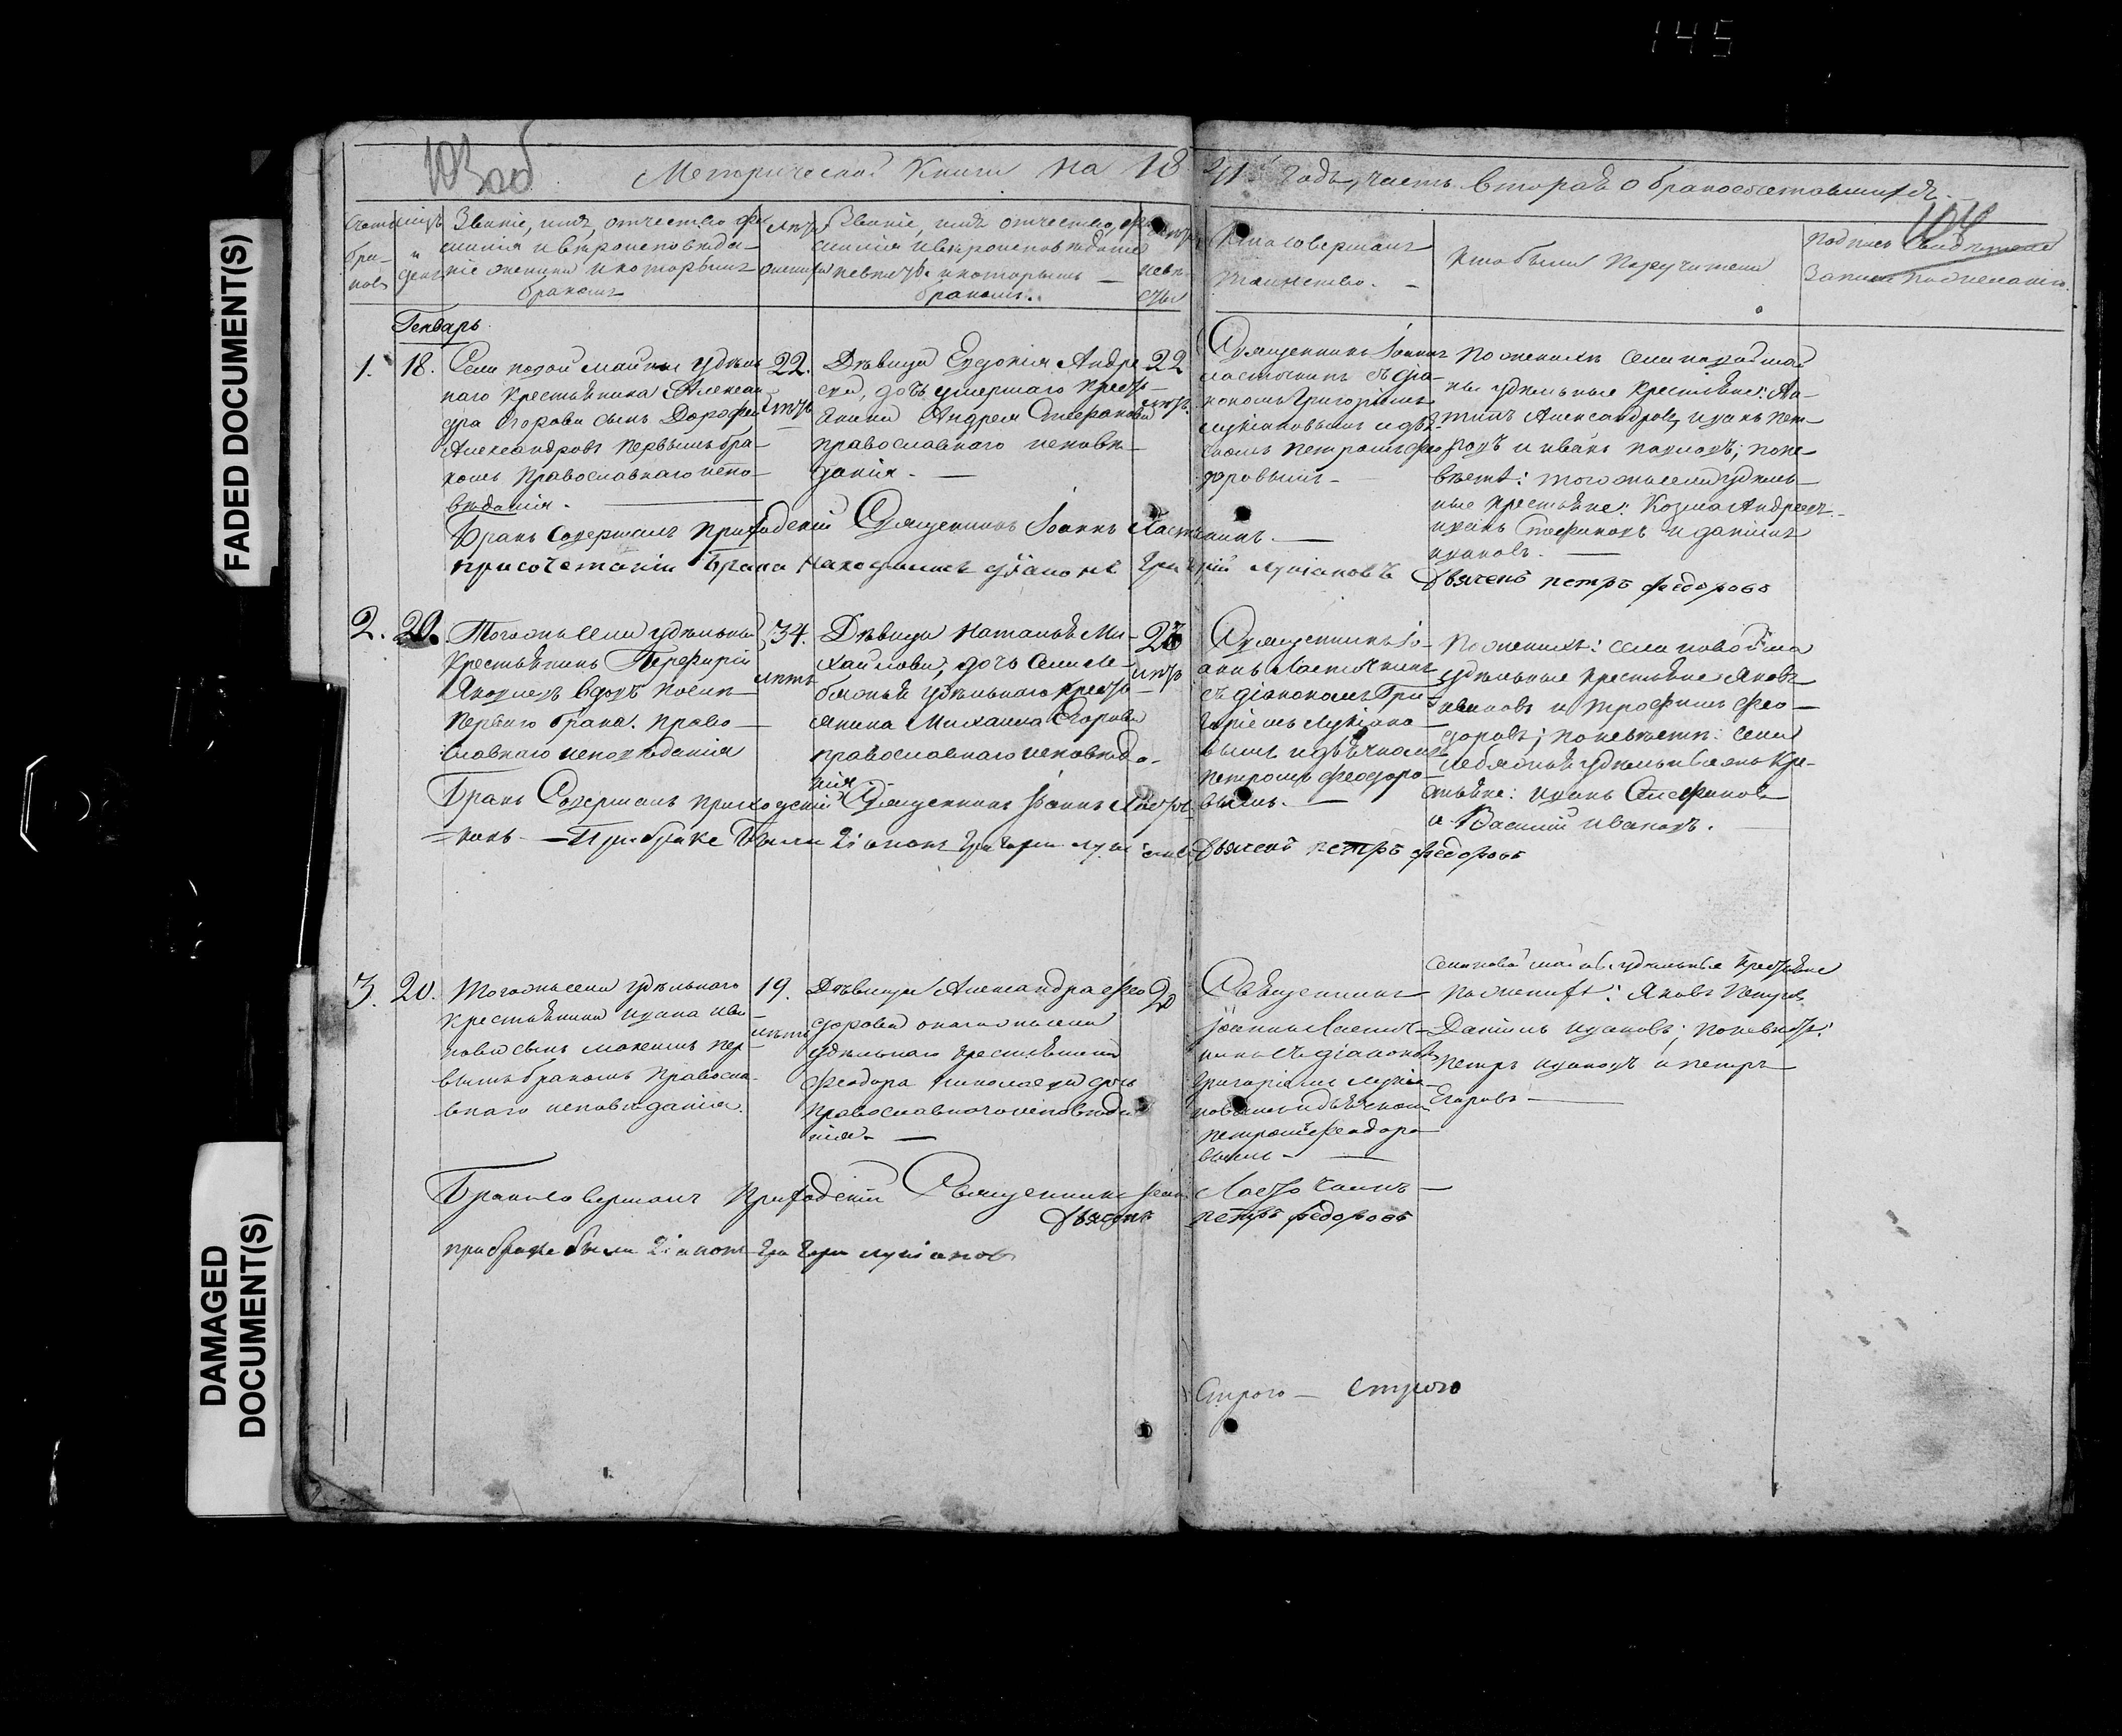 145
FADED DOCUMENT(S)
DAMAGED
DOCUMENT(S)
103 об
104
Метрической книги на 1841 годъ, часть вторая о бракосочетавшихся.
Счетъ
бра-
ковъ
Званіе, имя, отчество, фа-
милія и вѣроисповѣда-
ніе жениха и которымъ
бракомъ
Лѣта
жениха
Званіе, имя, отчество, фа-
милія и вѣроисповѣданіе
невѣсты и которымъ
бракомъ.
невѣ-
сты
Кто совершалъ
таинство.
Кто были поручители
Подпись свидѣтелей
записи по желанію.
Генварь
1.
18.
Села новой майны удѣль
наго крестьянина Алексан
дра Егорова сынъ Дорофей
Александровъ первымъ бра-
комъ православнаго испо-
вѣданія.
22.
лѣтъ
Дѣвица Евдокія Андре
ева, дочь умершаго кресть-
янина Андрея Стефанова
православнаго исповѣ-
данія.
22
лѣтъ.
Священникъ Іоаннъ
Ласточкинъ съ діа-
кономъ Григорьемъ
Лукіановымъ и дья-
чкомъ Петромъ Фео
доровымъ
По женихѣ села новой май
ны удѣльные крестьяне:
Александровъ, иванъ пет-
ровъ и иванъ павловъ; по не-
вѣстѣ: того жъ села удѣль-
ные крестьяне: Козма Андреевъ
иванъ Стефановъ и Даніилъ
ивановъ.
Бракъ совершалъ приходскій Священникъ Іоаннъ Ласточкинъ.
при сочетаніи брака находились діаконъ Григорій Лукіановъ Дьячекъ петръ федоровъ
2.
20.
Того жъ села удѣльный
крестьянинъ Перфирій
Яковлевъ вдовъ послѣ
перваго брака. право-
славнаго исповѣданія
34.
лѣтъ
Дѣвица Наталья Ми-
хайлова, дочь села Ле-
бяжья удѣльнаго кресть-
янина Михаила Егорова
православнаго исповѣда-
нія.
лѣтъ
Священникъ Іо-
аннъ Ласточкинъ
съ діакономъ Гри-
горіемъ Лукіано-
вымъ и дьячкомъ
Петромъ Феодоро-
вымъ.
По женихѣ: села новой майны
удѣльные крестьяне Яковъ
ивановъ и Трофимъ Фео-
доровъ; по невѣстѣ: села
Лебяжья удѣльные кре-
стьяне: иванъ Стефановъ
и Василій ивановъ.
Бракъ Совершалъ приходскій Священникъ Іоаннъ Ласточ-
кинъ. При браке были діаконъ Григори Лукіановъ Дьячекъ петръ федоровъ
3.
20.
Того жъ села удѣльнаго
крестьянина ивана ива
нова сынъ Максимъ пер
вымъ бракомъ правосла
внаго исповѣданія.
19.
лѣтъ
Дѣвица Александра Фео
дорова онаго жъ села
удѣльнаго крестьянина
Феодора Николаева дочь
православнаго исповѣда
нія.
20
Священникъ
Іоаннъ Ласточ-
кинъ съ діакономъ
Григоріемъ Лукіа-
новымъ и дьячкомъ
Петромъ Феодоро-
вымъ
Села новой майны удѣльные крестьяне
по женихѣ: Яковъ
Даніилъ ивановъ; по невѣстѣ:
Петръ ивановъ и петръ
Егоровъ
Бракъ совершалъ приходскій Священникъ Іоаннъ Ласточкинъ
Дьячекъ петръ федоровъ
при браке были діаконъ Григори Лукіановъ